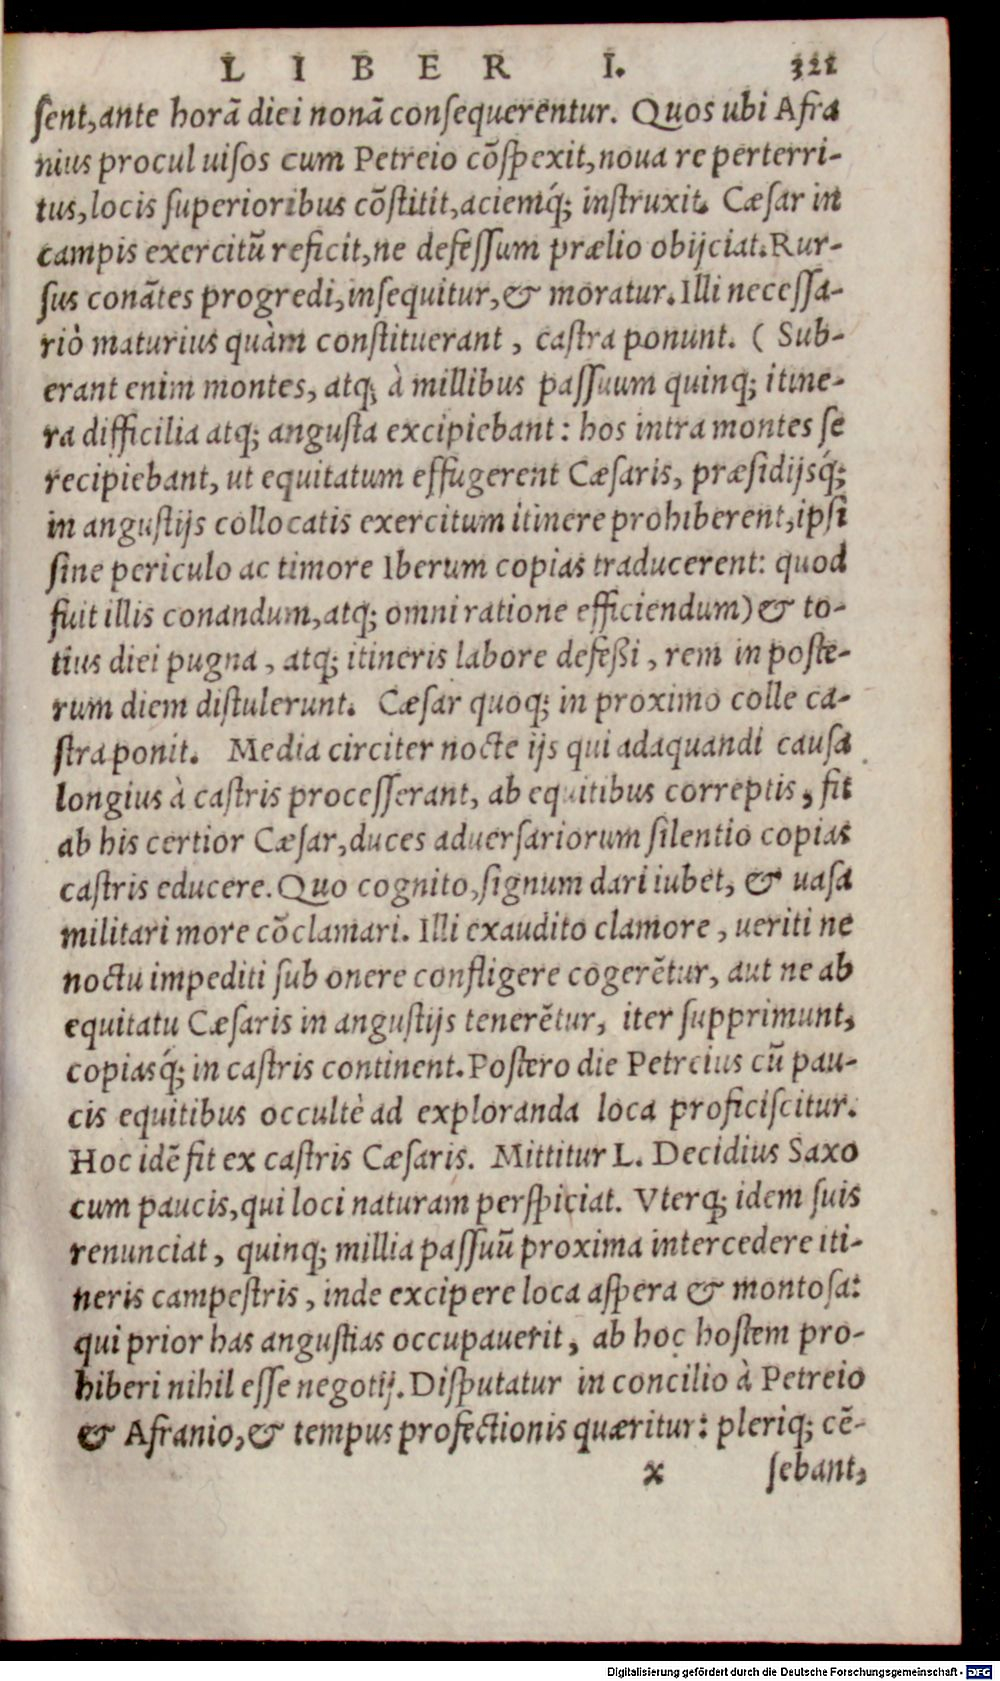 LIBER I. 321
ſent,ante horā diei nonā conſequerentur. Quos ubi Afra
nius procul uiſos cum Petreio cōſpexit,noua re perterri-
tus,locis ſuperioribus cōſtitit,aciemq́; inſtruxit. Cæſar in
campis exercitū reficit,ne defeſſum prælio obijciat.Rur-
ſus conātes progredi,inſequitur,& moratur.Illi neceſſa-
riò maturius quàm conſtituerant , caſtra ponunt. ( Sub-
erant enim montes, atq; à millibus paſſuum quinq; itine-
ra difficilia atq; anguſta excipiebant : hos intra montes ſe
recipiebant, ut equitatum effugerent Cæſaris, præſidijsq́;
in anguſtijs collocatis exercitum itinere prohiberent,ipſi
ſine periculo ac timore Iberum copias traducerent: quod
fuit illis conandum,atq; omni ratione efficiendum)& to-
tius diei pugna , atq; itineris labore defeßi , rem in poſte-
rum diem diſtulerunt. Cæſar quoq; in proximo colle ca-
ſtra ponit. Media circiter nocte ijs qui adaquandi cauſa
longius à caſtris proceſſerant, ab equitibus correptis , fit
ab his certior Cæſar,duces aduerſariorum ſilentio copias
caſtris educere. Quo cognito,ſignum dari iubet, & uaſa
militari more cōclamari. Illi exaudito clamore , ueriti ne
noctu impediti ſub onere confligere cogerētur, aut ne ab
equitatu Cæſaris in anguſtijs tenerētur, iter ſupprimunt,
copiasq́; in caſtris continent.Poſtero die Petreius cū pau-
cis equitibus occultè ad exploranda loca proficiſcitur.
Hoc idē fit ex caſtris Cæſaris. Mittitur L. Decidius Saxo
cum paucis,qui loci naturam perſpiciat. Vterq; idem ſuis
renunciat , quinq; millia paſſuū proxima intercedere iti-
neris campeſtris , inde excipere loca aſpera & montoſa:
qui prior has anguſtias occupauerit , ab hoc hoſtem pro-
hiberi nihil eſſe negotij. Diſputatur in concilio à Petreio
& Afranio,& tempus profectionis quæritur: pleriq; cē-
x ſebant,
Digitalisierung gefördert durch die Deutsche Forschungsgemeinschaft - DFG